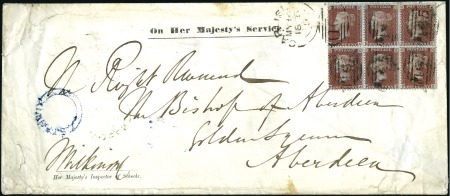 On Her Majesty's Service
The Right Reverend
The Bishop of Aberdeen
Golden Square
Aberdeen
Wilkinson
Her Majesty's Inspector of Schools.